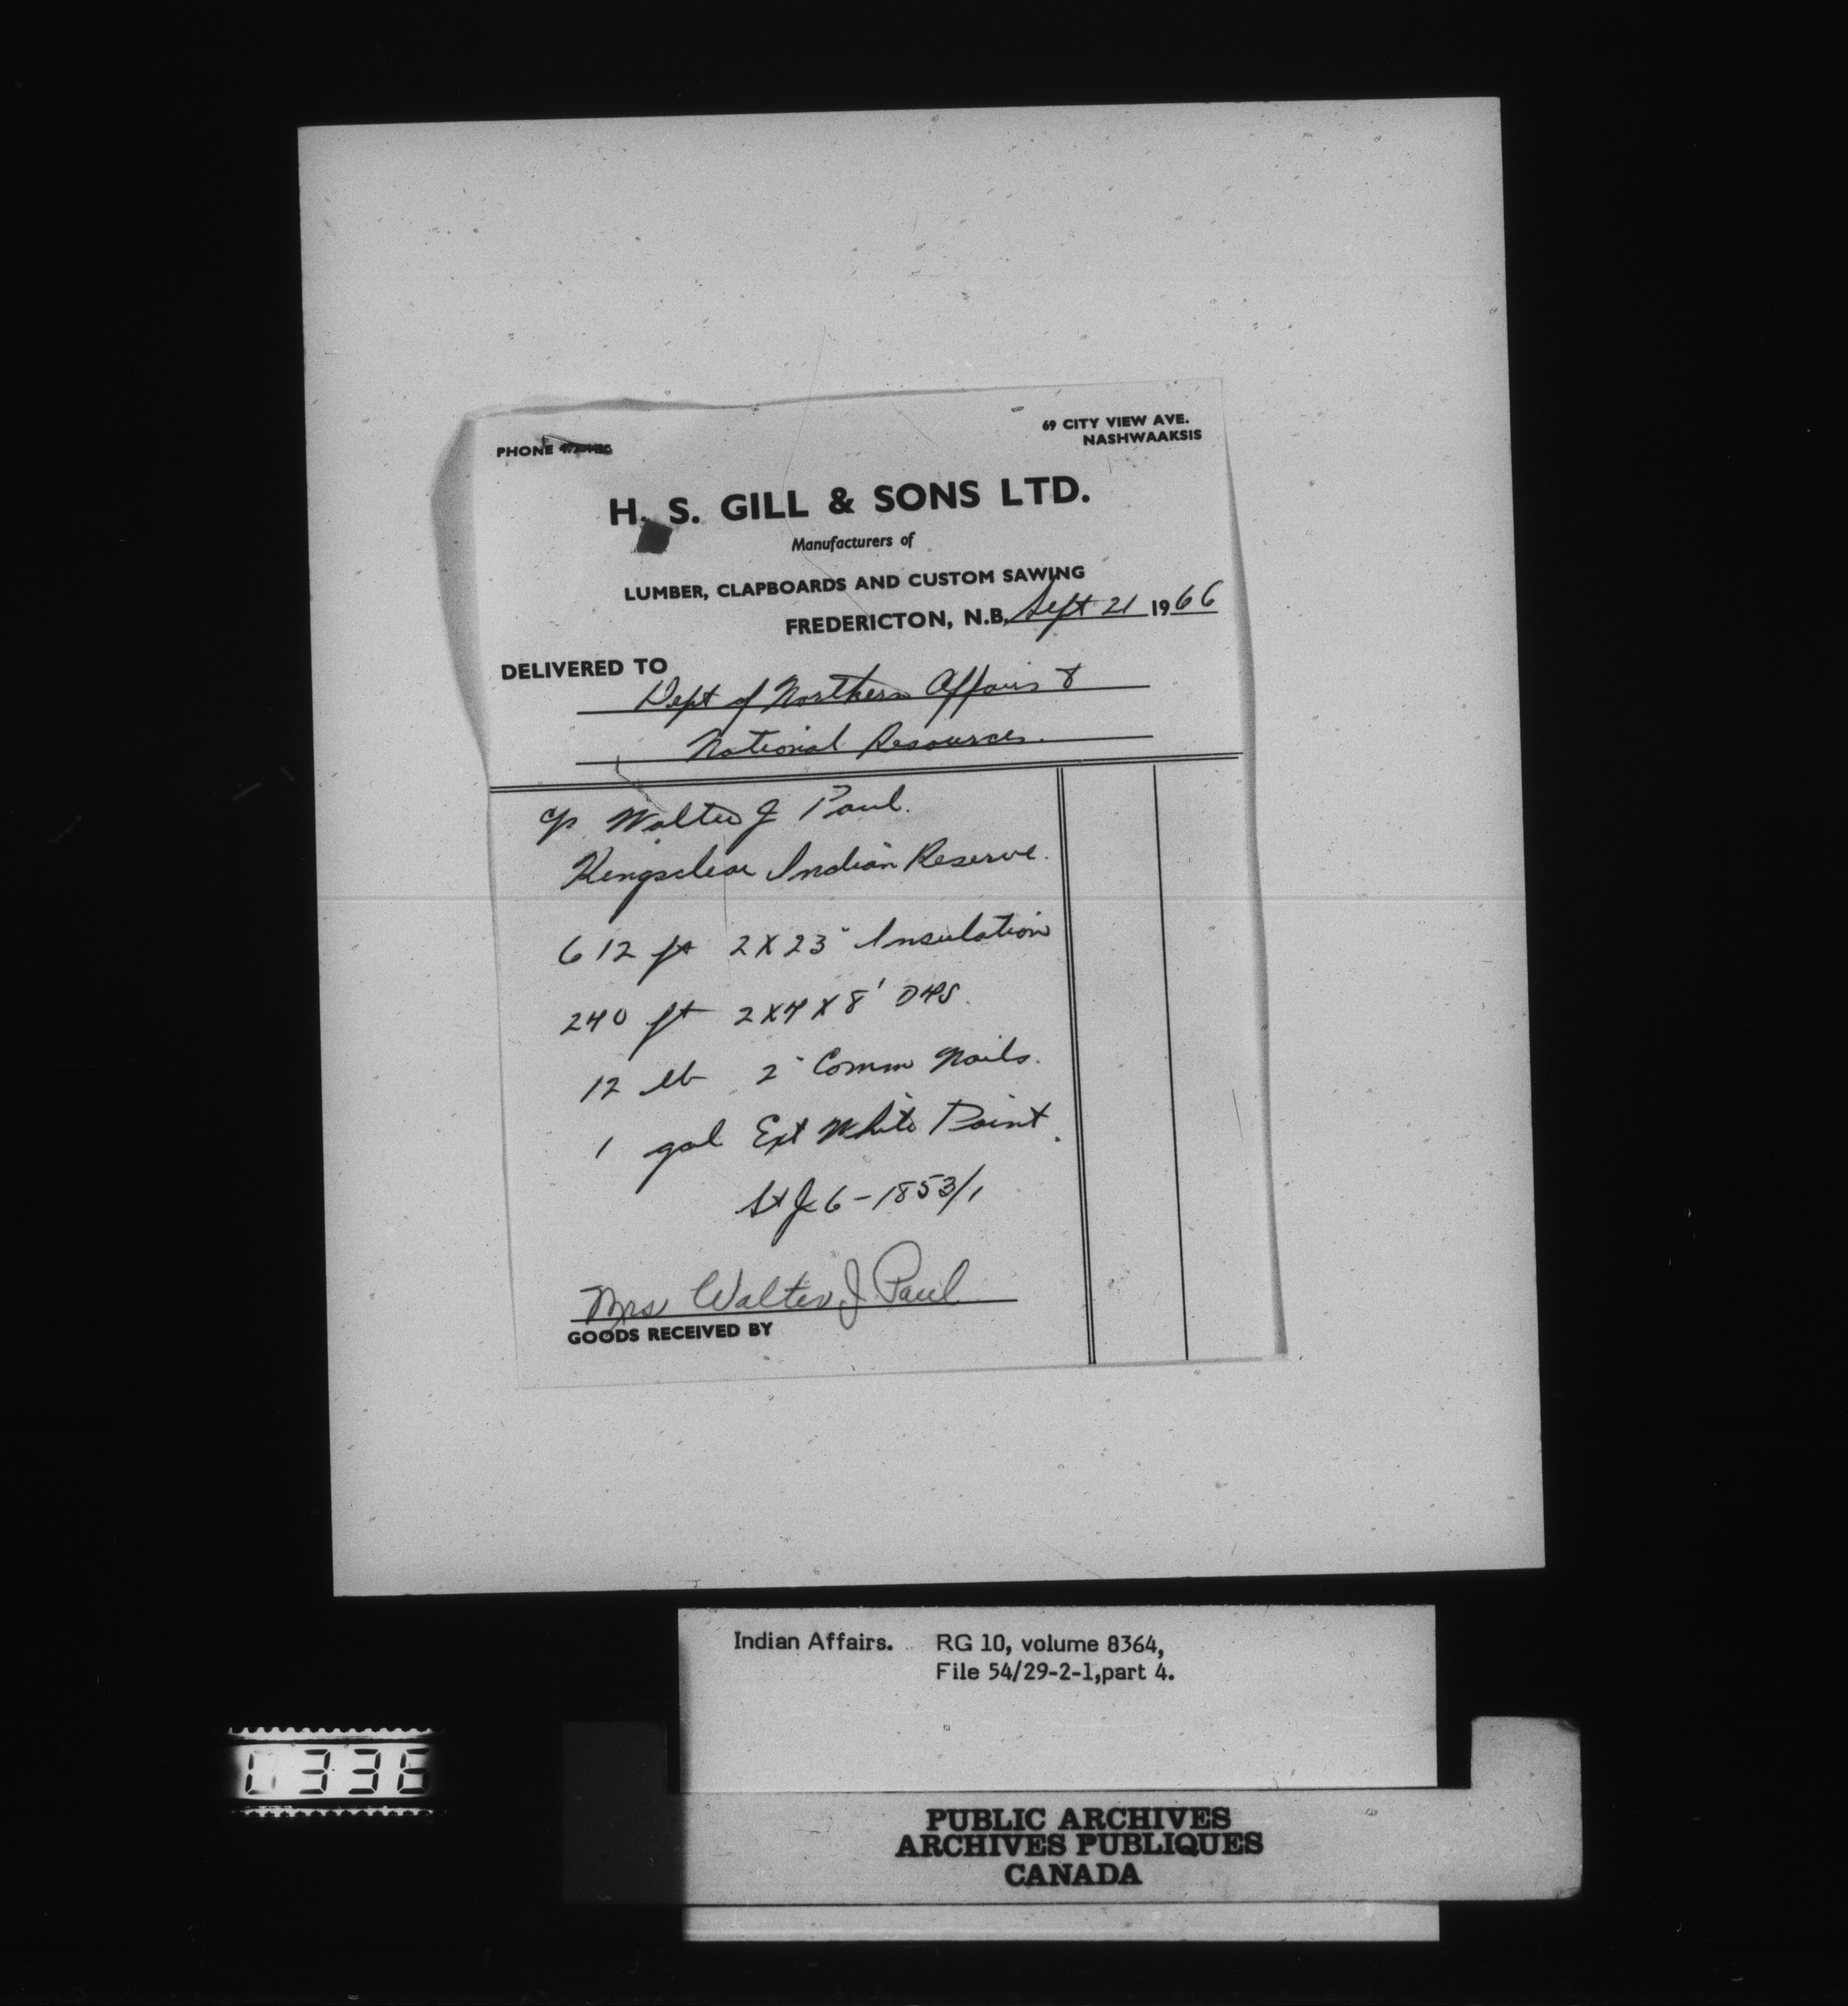 PHONE
69 CITY VIEW AVE.
NASHWAAKSIS
H. S. GILL & SONS LTD.
Manufacturers of
LUMBER, CLAPBOARDS AND CUSTOM SAWING
FREDERICTON, N.B. Sept 21 1966
DELIVERED TO
Dept of Northern Affairs &
National Resources.
Walter J Paul.
Kingsclear Indian Reserve.
612 ft 2 X 23" Insulation
240 ft 2X4X8' D4S.
12 lb 2" Comm Nails.
1 gal Ext White Paint.
St J 6-1853/1
Mrs Walter J. Paul
GOODS RECEIVED BY
Indian Affairs. RG 10, volume 8364,
File 54/29-2-1,part 4.
0336
PUBLIC ARCHIVES
ARCHIVES PUBLIQUES
CANADA